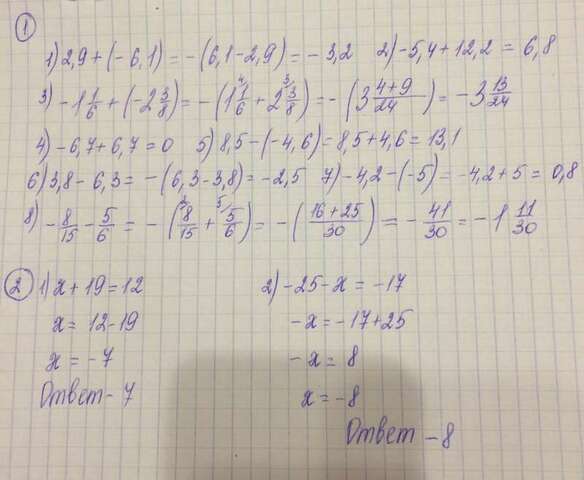 1
1) 2,9 + (- 6,1) = - (6,1 - 2,9) = - 3,2 2) - 5,4 + 12,2 = 6,8
3) - 1 1/6 + (- 2 3/8) = - (1 1/6 + 2 3/8) = - (3 (4+9)/24) = - 3 13/24
4) - 6,7 + 6,7 = 0 5) 8,5 - (- 4,6) = 8,5 + 4,6 = 13,1
6) 3,8 - 6,3 = - (6,3 - 3,8) = - 2,5 7) - 4,2 - (- 5) = - 4,2 + 5 = 0,8
8) - 8/15 - 5/6 = - (8/15 + 5/6) = - ((16 + 25)/30) = - 41/30 = - 1 11/30
2 1) x + 19 = 12 2) - 25 - x = - 17
x = 12 - 19 - x = - 17 + 25
x = - 7 - x = 8
Ответ - 7 x = - 8
Ответ - 8